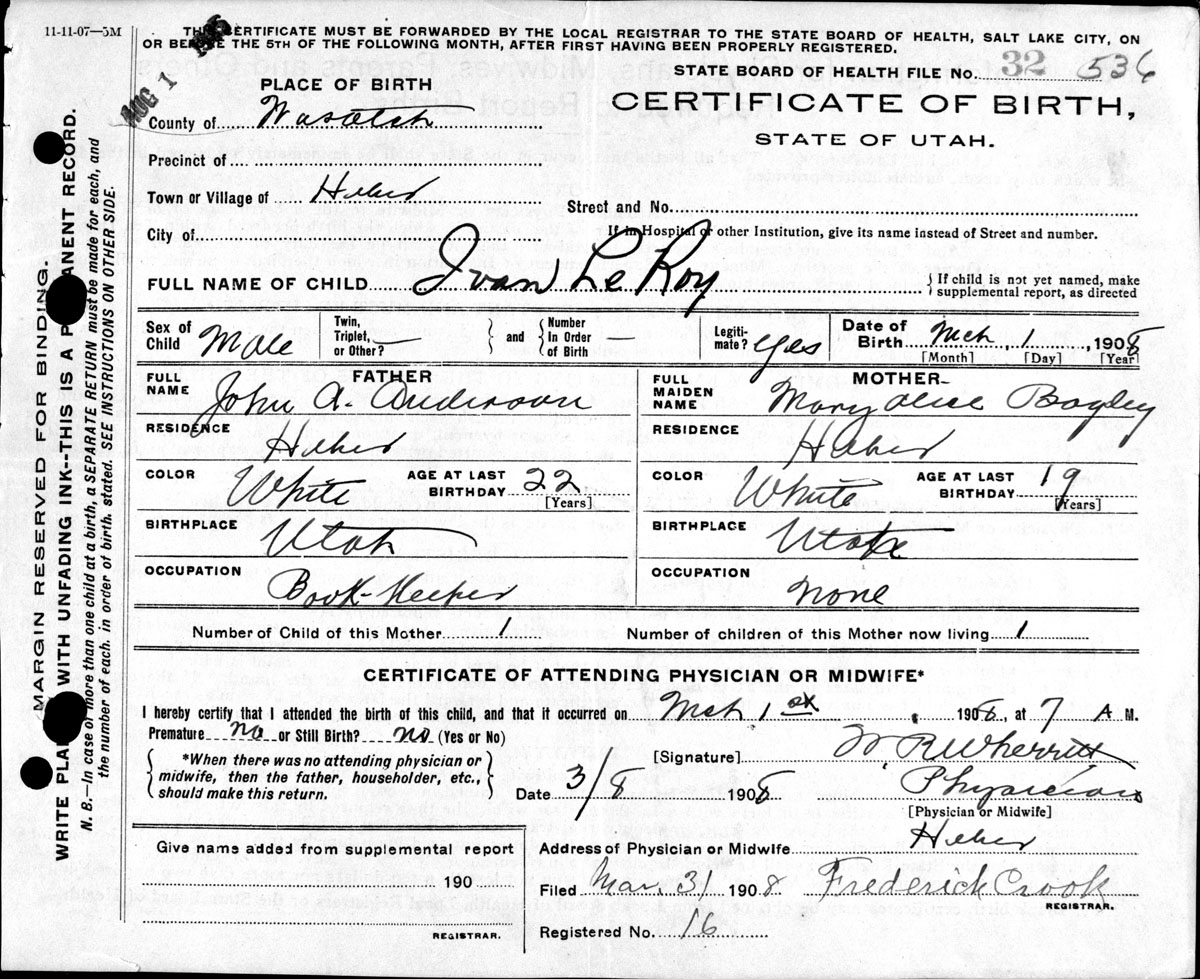 11-11-07—5M
THIS CERTIFICATE MUST BE FORWARDED BY THE LOCAL REGISTRAR TO THE STATE BOARD OF HEALTH, SALT LAKE CITY, ON
OR BEFORE THE 5TH OF THE FOLLOWING MONTH, AFTER FIRST HAVING BEEN PROPERLY REGISTERED.
AUG 1
STATE BOARD OF HEALTH FILE No. 32 536
PLACE OF BIRTH
CERTIFICATE OF BIRTH,
STATE OF UTAH.
County of Wasatch
Precinct of
Town or Village of Heber
Street and No.
City of
If in Hospital or other Institution, give its name instead of Street and number.
FULL NAME OF CHILD Ivan LeRoy
If child is not yet named, make
supplemental report, as directed
Sex of Child Male
Twin, Triplet, or Other? —
and
Number In Order of Birth —
Legiti-mate? Yes
Date of Birth Mch 1, 1908
[Month] [Day] [Year]
FATHER
FULL NAME John A. Anderson
RESIDENCE Heber
COLOR White AGE AT LAST BIRTHDAY 22 [Years]
BIRTHPLACE Utah
OCCUPATION Book-Keeper
MOTHER
FULL MAIDEN NAME Mary Alice Bagley
RESIDENCE Heber
COLOR White AGE AT LAST BIRTHDAY 19 [Years]
BIRTHPLACE Utah
OCCUPATION None
Number of Child of this Mother 1 Number of children of this Mother now living 1
CERTIFICATE OF ATTENDING PHYSICIAN OR MIDWIFE*
I hereby certify that I attended the birth of this child, and that it occurred on Mch 1st, 1908, at 7 A M.
Premature no or Still Birth? no (Yes or No)
*When there was no attending physician or
midwife, then the father, householder, etc.,
should make this return.
[Signature] W. R. Wherritt
Date 3/8 1908 Physician
[Physician or Midwife]
Give name added from supplemental report
190
REGISTRAR.
Address of Physician or Midwife Heber
Filed Mar. 31 1908 Frederick Crook
REGISTRAR.
Registered No. 16
MARGIN RESERVED FOR BINDING.
WRITE PLAINLY WITH UNFADING INK--THIS IS A PERMANENT RECORD.
N. B.—In case of more than one child at a birth, a SEPARATE RETURN must be made for each, and
the number of each, in order of birth, stated. SEE INSTRUCTIONS ON OTHER SIDE.